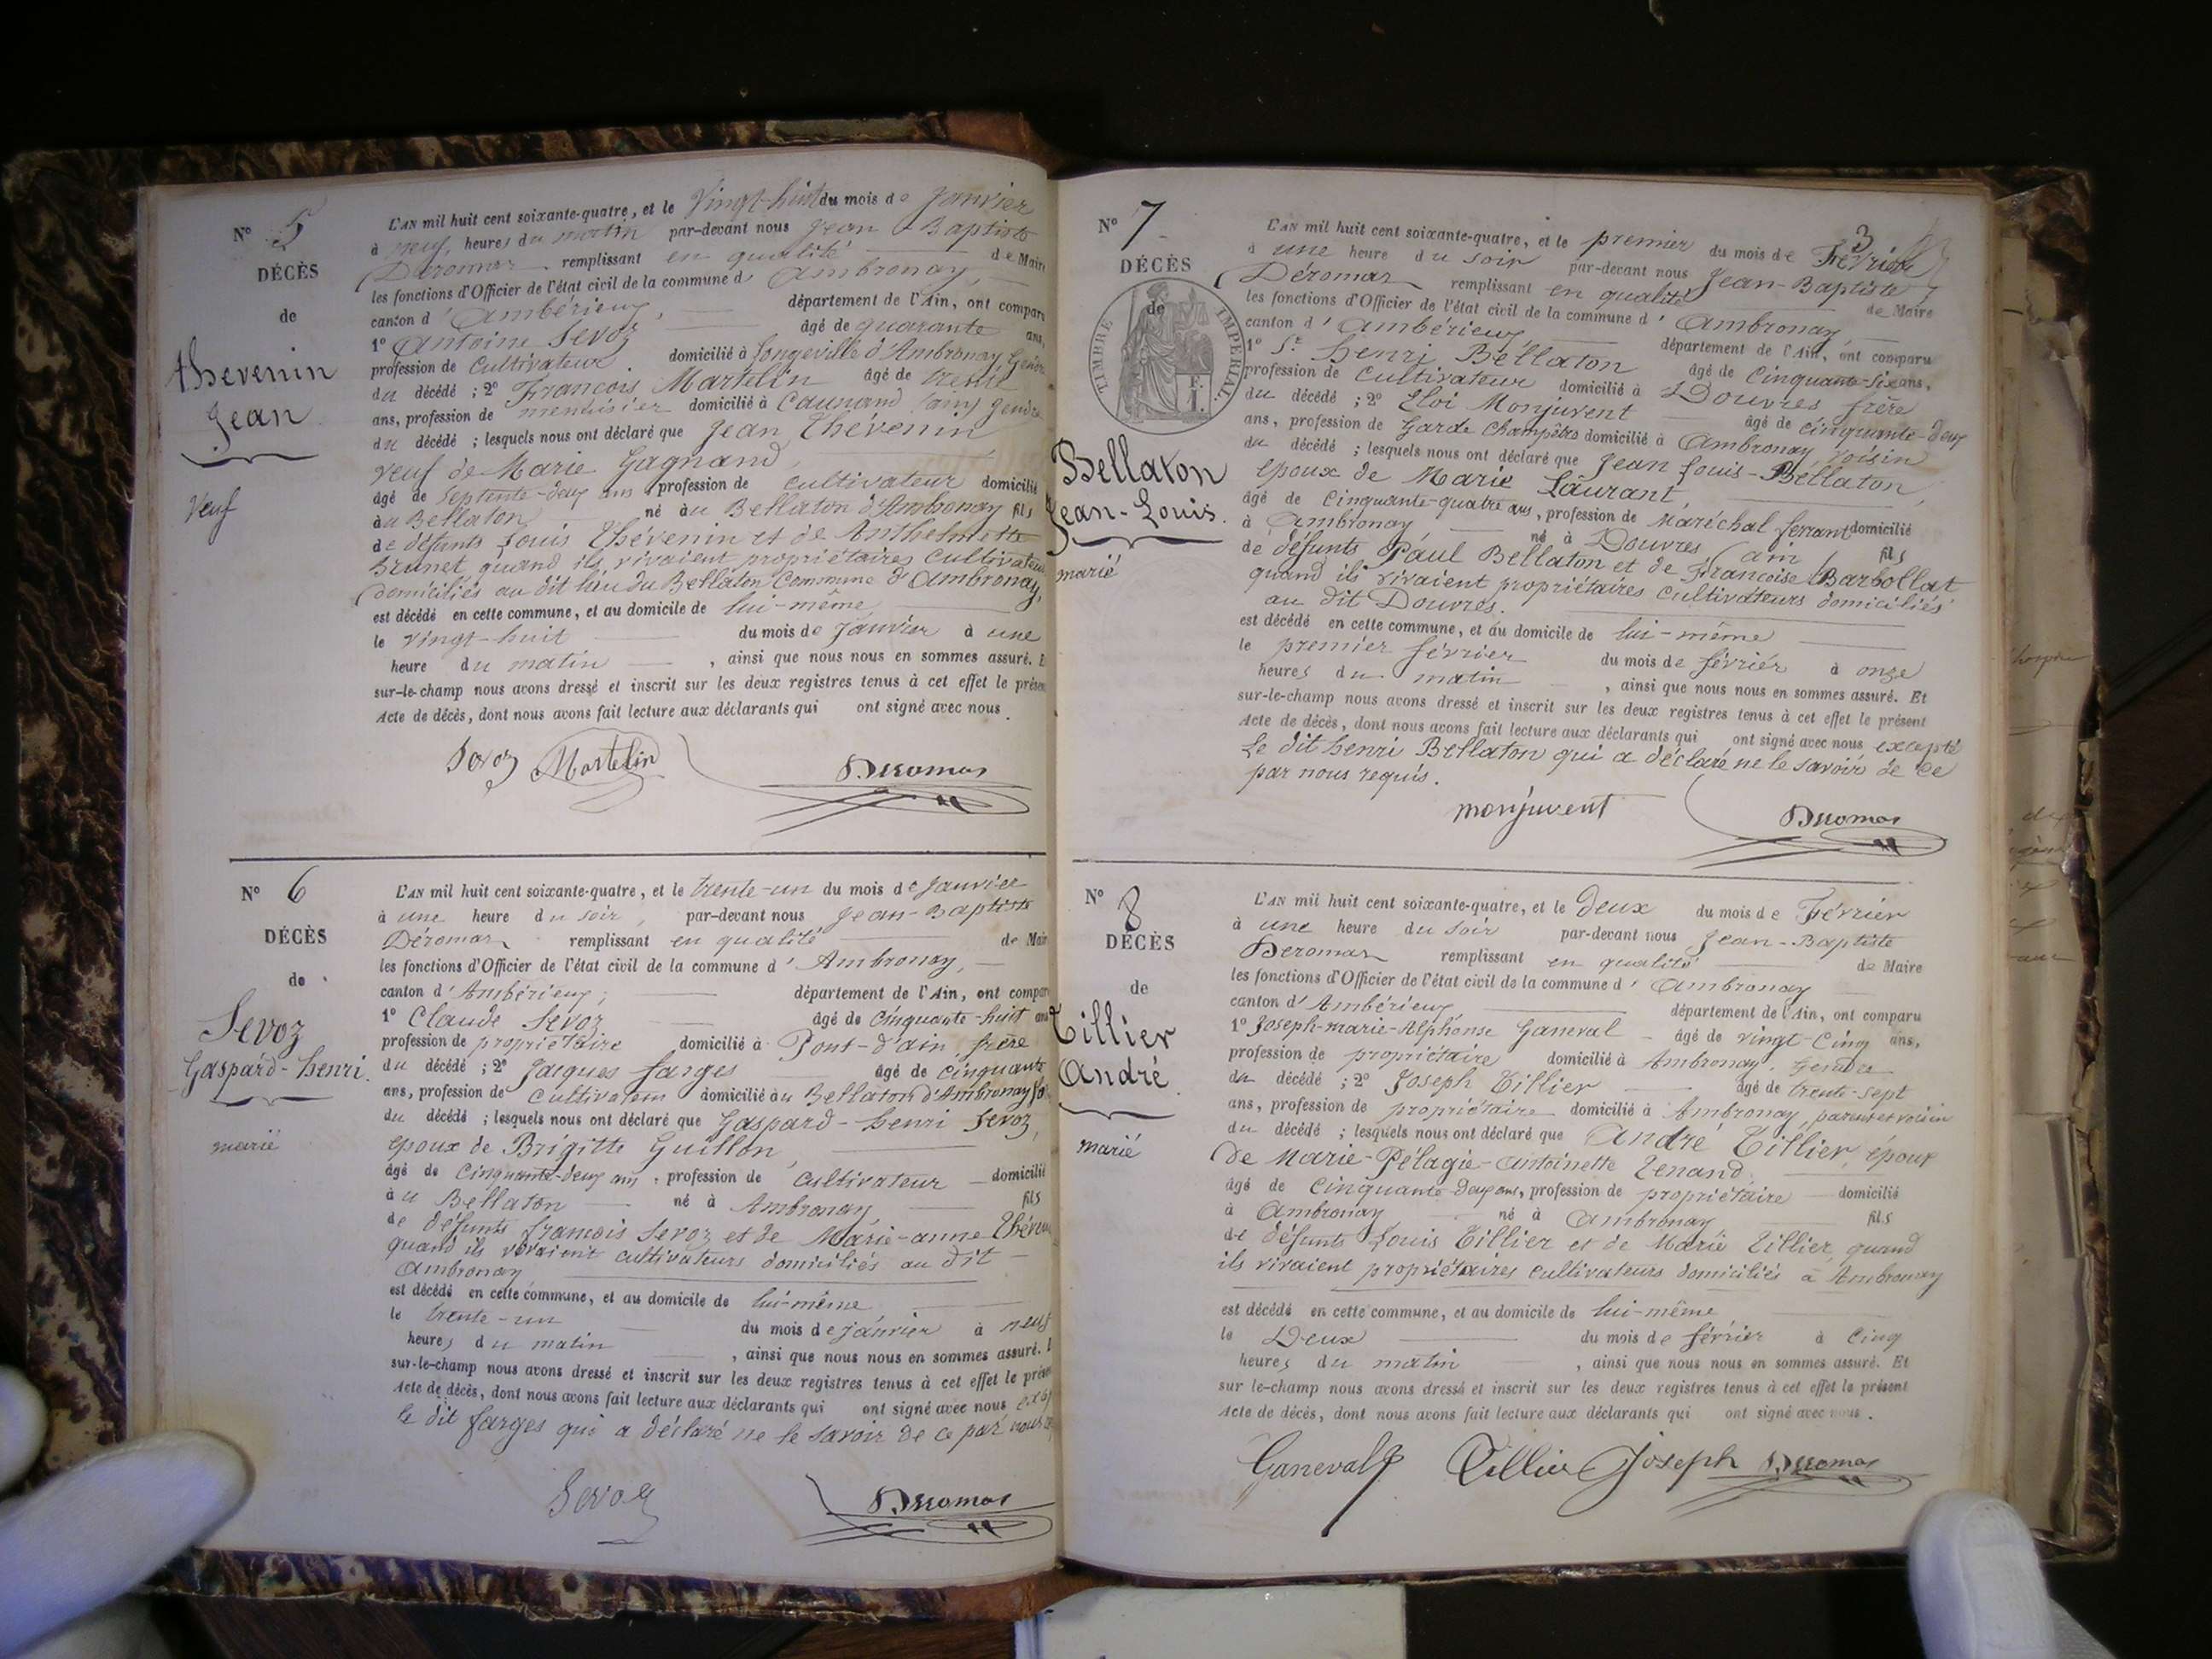 N° 5
DÉCÈS
de
Thevenin
Jean
Veuf
L'AN mil huit cent soixante-quatre, et le Vingt-huit du mois de Janvier
à neuf heures du matin par-devant nous Jean Baptiste
Déromas remplissant en qualité de Maire
les fonctions d'Officier de l'état civil de la commune d' Ambronay,
canton d' Ambérieux, département de l'Ain, ont comparu
1° Antoine Sevoz âgé de quarante ans,
profession de Cultivateur domicilié à Longeville d'Ambronay Gendre
du décédé ; 2° François Martelin âgé de trente
ans, profession de menuisier domicilié à (ain) gendre
du décédé ; lesquels nous ont déclaré que Jean Thévenin
veuf de Marie Gagnand,
âgé de Septente-deux ans, profession de cultivateur domicilié
au Bellaton né au Bellaton d'Ambronay fils
de défunts Louis Thévenin et de Anthelmette
Brunet quand ils vivaient propriétaires cultivateurs
domiciliés au dit lieu du Bellaton Commune d'Ambronay,
est décédé en cette commune, et au domicile de lui-même
le vingt-huit du mois de Janvier à une
heure du matin , ainsi que nous nous en sommes assuré. E
sur-le-champ nous avons dressé et inscrit sur les deux registres tenus à cet effet le présen
Acte de décès, dont nous avons fait lecture aux déclarants qui ont signé avec nous.
Sevoz Martelin Deromas
N° 6
DÉCÈS
de
Sevoz
Gaspard-henri.
marié
L'AN mil huit cent soixante-quatre, et le trente-un du mois de Janvier
à une heure du soir, par-devant nous Jean-Baptiste
Déromas remplissant en qualité de Maire
les fonctions d'Officier de l'état civil de la commune d' Ambronay,
canton d' Ambérieux; département de l'Ain, ont compar
1° Claude Sevoz âgé de Cinquante-huit ans
profession de propriétaire domicilié à Pont-d'ain frère
du décédé ; 2° Jacques farges âgé de cinquante
ans, profession de cultivateur domicilié au Bellaton d'Ambronay
du décédé ; lesquels nous ont déclaré que Gaspard-henri Sevoz,
époux de Brigitte Guillon,
âgé de Cinquante-deux ans, profession de cultivateur domicilié
au Bellaton né à Ambronay fils
de défunts francois Sevoz et de Marie-anne Théven
quand ils vivaient cultivateurs domiciliés au dit
Ambronay
est décédé en cette commune, et au domicile de lui-même
le trente-un du mois de janvier à neuf
heures du matin , ainsi que nous nous en sommes assuré.
sur-le-champ nous avons dressé et inscrit sur les deux registres tenus à cet effet le présen
Acte de décès, dont nous avons fait lecture aux déclarants qui ont signé avec nous
le dit farges qui a déclaré ne le savoir de ce par nous
Sevoz Deromas
3
N° 7
DÉCÈS
de
TIMBRE IMPÉRIAL.
F. I.
Bellaton
Jean-Louis.
marié
L'AN mil huit cent soixante-quatre, et le premier du mois de Février
à une heure du soir par-devant nous Jean-Baptiste
Déromas remplissant en qualité de Maire
les fonctions d'Officier de l'état civil de la commune d' Ambronay
canton d' Ambérieux département de l'Ain, ont comparu
1° Sr. henri Bellaton âgé de Cinquante-six ans,
profession de Cultivateur domicilié à Douvres frère
du décédé ; 2° Eloi Monjuvent âgé de cinquante-deux
ans, profession de Garde Champêtre domicilié à Ambronay voisin
du décédé ; lesquels nous ont déclaré que Jean Louis-Bellaton
époux de Marie Laurant,
âgé de Cinquante-quatre ans, profession de Maréchal ferrant domicilié
à Ambronay né à Douvres (ain) fils
de défunts Paul Bellaton et de Francoise Barbollat
quand ils vivaient propriétaires cultivateurs domiciliés
au dit Douvres.
est décédé en cette commune, et au domicile de lui-même
le premier février du mois de février à onze
heures du matin , ainsi que nous nous en sommes assuré. Et
sur-le-champ nous avons dressé et inscrit sur les deux registres tenus à cet effet le présent
Acte de décès, dont nous avons fait lecture aux déclarants qui ont signé avec nous excepté
Le dit henri Bellaton qui a déclaré ne le savoir de ce
par nous requis.
monjuvent Deromas
N° 8
DÉCÈS
de
Tillier
André
marié
L'AN mil huit cent soixante-quatre, et le Deux du mois de Février
à une heure du soir par-devant nous Jean-Baptiste
Deromas remplissant en qualité de Maire
les fonctions d'Officier de l'état civil de la commune d' Ambronay
canton d' Ambérieux département de l'Ain, ont comparu
1° Joseph-marie-Alphonse Ganeval âgé de vingt-cinq ans,
profession de propriétaire domicilié à Ambronay, Gendre
du décédé ; 2° Joseph Tillier âgé de trente-sept
ans, profession de propriétaire domicilié à Ambronay, parent et voisin
du décédé ; lesquels nous ont déclaré que André Tillier, époux
de Marie-Pélagie-Antoinette Tenand,
âgé de Cinquante-deux ans, profession de propriétaire domicilié
à Ambronay né à Ambronay fils
de défunts Louis Tillier et de Marie Tillier, quand
ils vivaient propriétaires cultivateurs domiciliés à Ambronay
est décédé en cette commune, et au domicile de lui-même
le Deux du mois de février à Cinq
heures du matin , ainsi que nous nous en sommes assuré. Et
sur le-champ nous avons dressé et inscrit sur les deux registres tenus à cet effet le présent
Acte de décès, dont nous avons fait lecture aux déclarants qui ont signé avec nous.
Ganeval Tillier Joseph Deromas